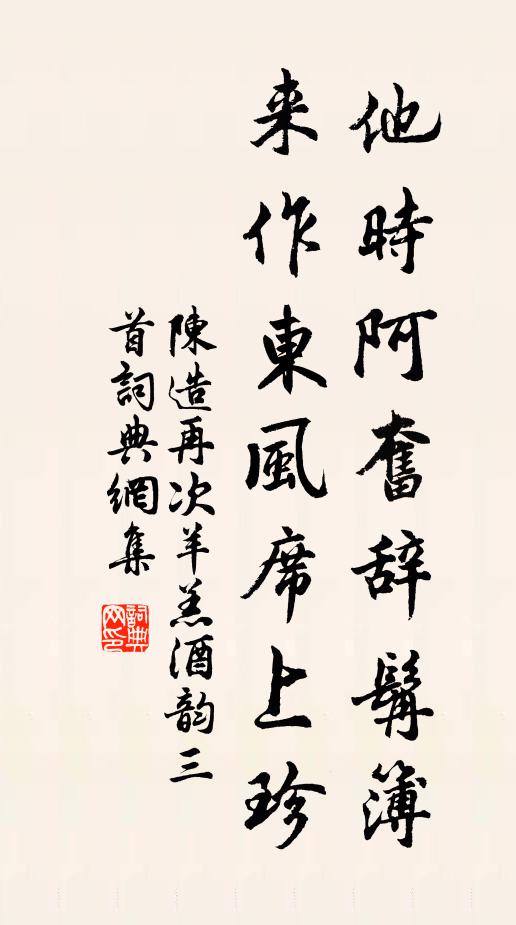 他時阿奮辞髯簿
来作東風席上珍
陳造再次羊羔酒韵三
首詞典網集
詞典
网印